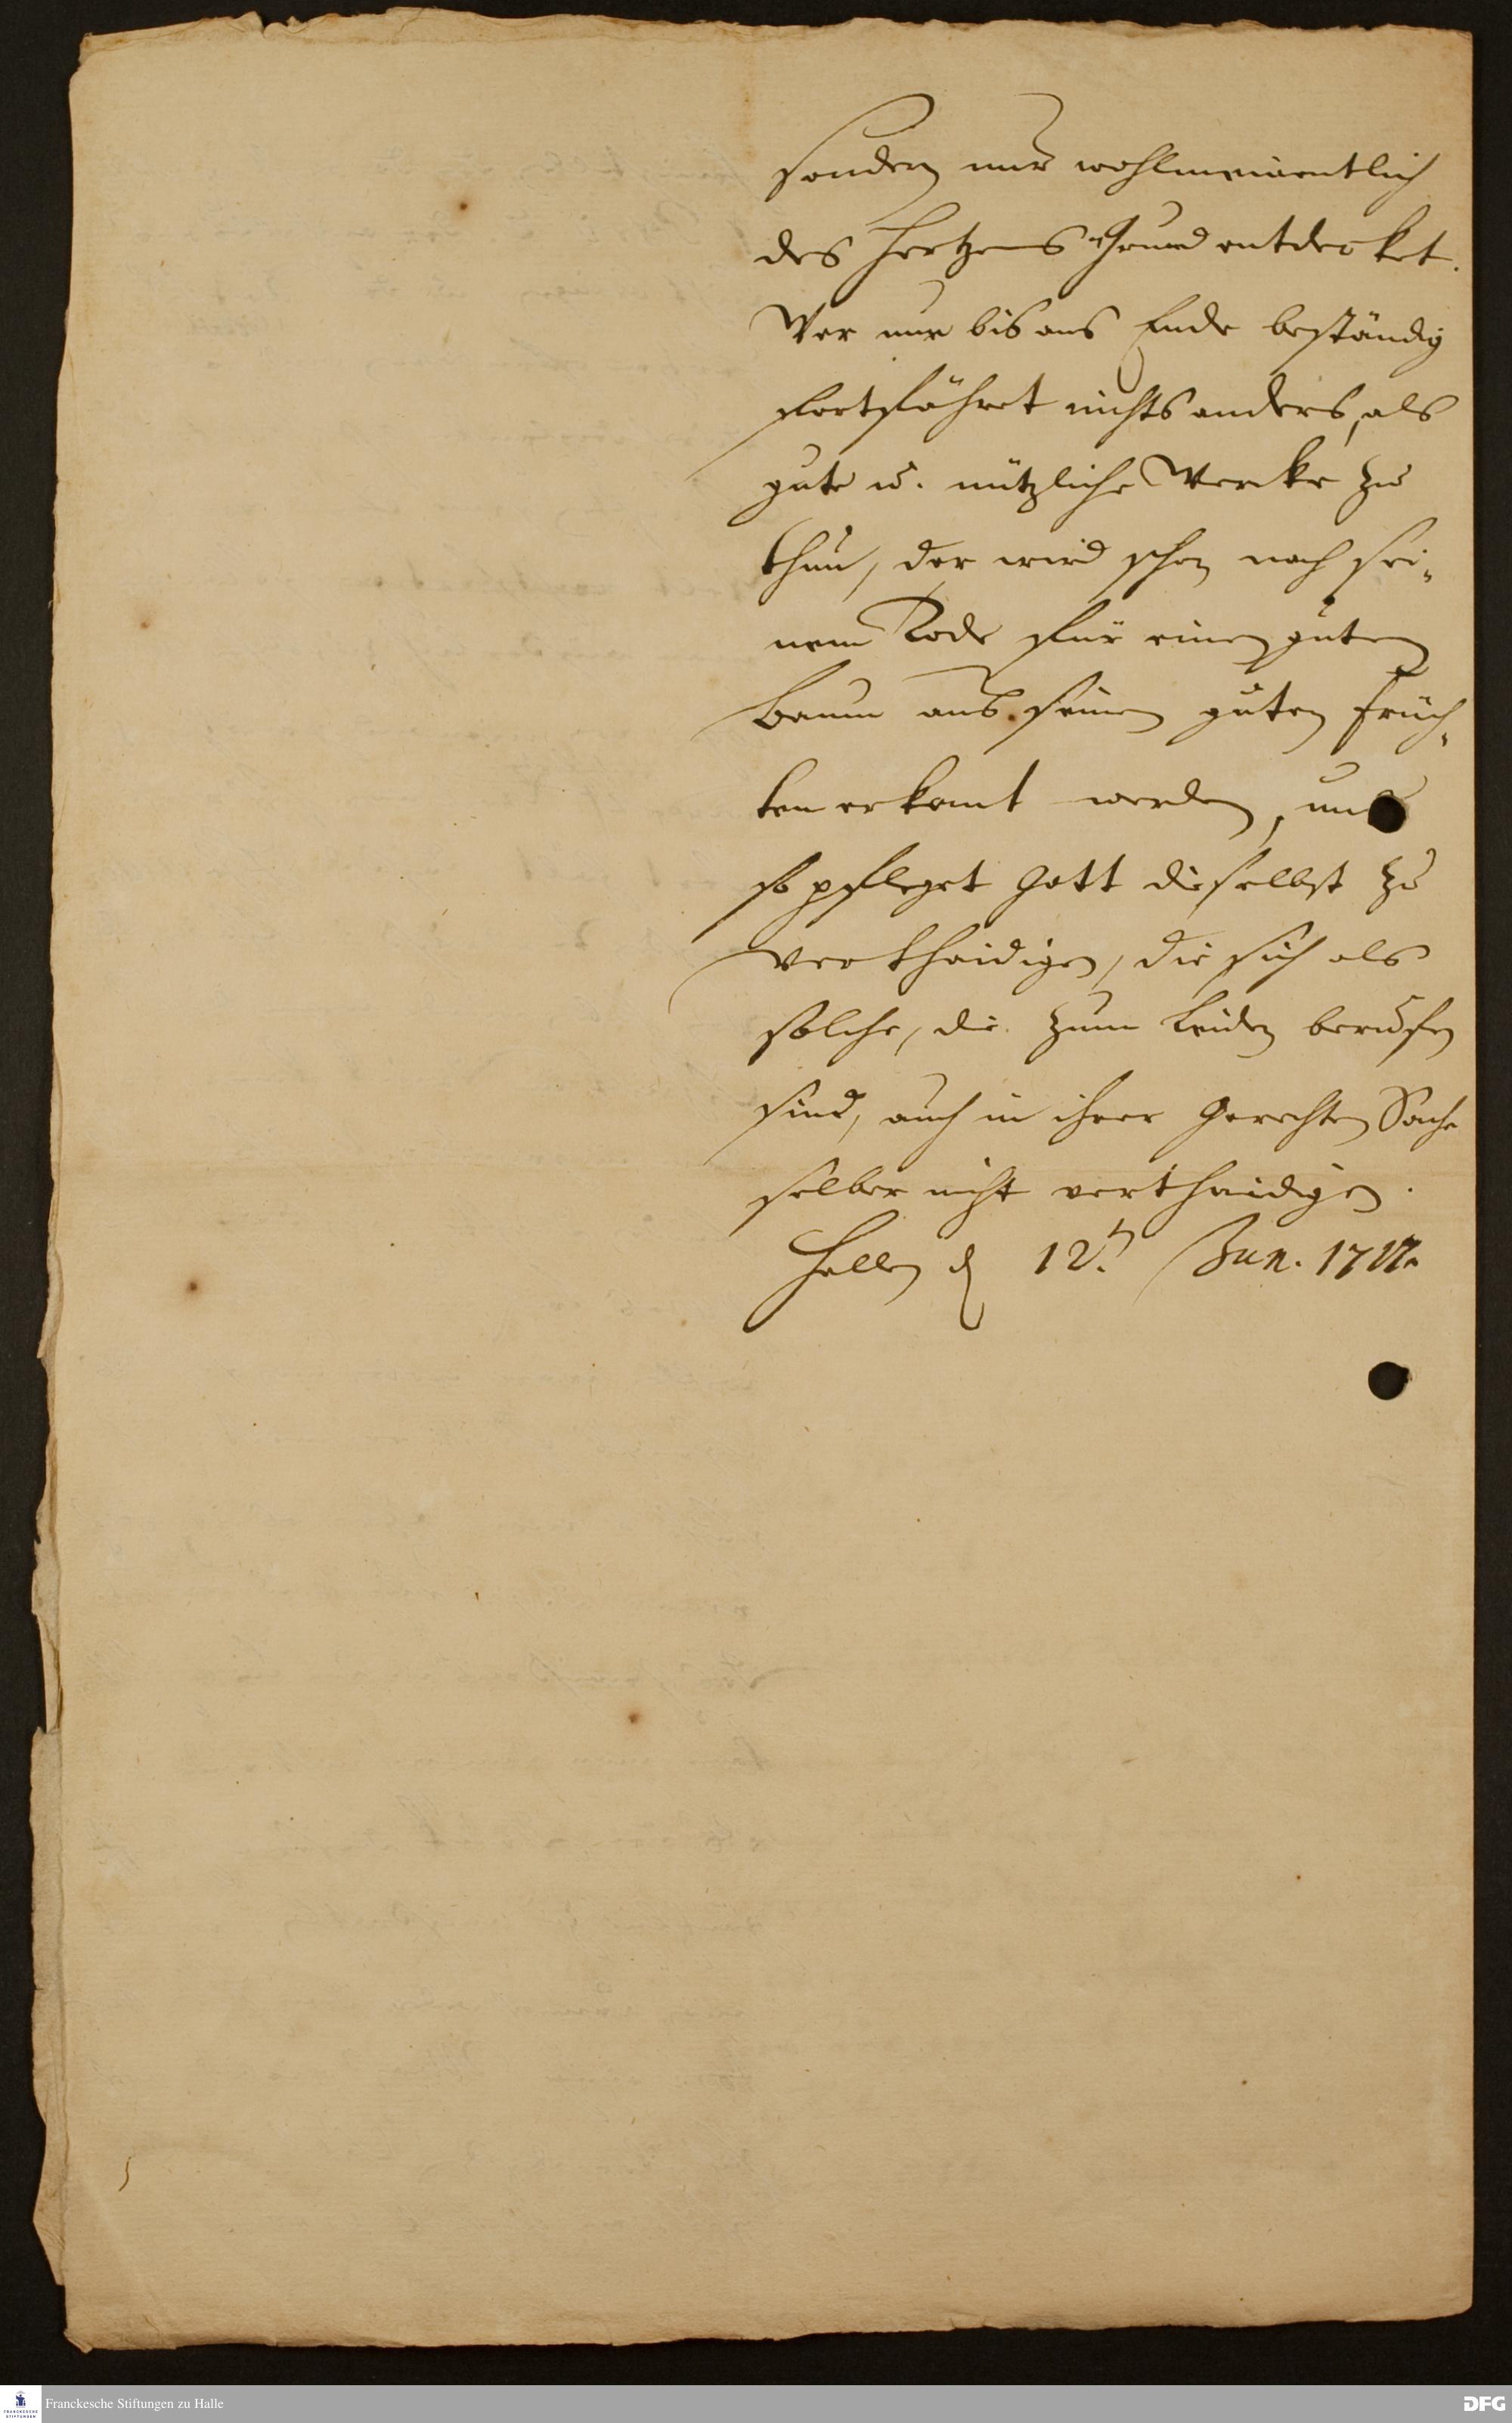 sondern nur wohlmeinentlich
des Hertzens Grund entdecket.
Wer nur bis ans Ende beständig
fortfähret nichts anders, als
gute u. nützliche Wercke zu
thun, der wird schon nach sei-
nem Tode für einen guten
Baum aus seinen guten Früch-
ten erkant werden, und
so pfleget Gott dieselbst zu
vertheidigen, die sich als
solche, die zum Leiden beruffen
sind, auch in ihrer Gerechten Sache
selber nicht vertheidigen.
Halle d 12. Jun.
Franckesche Stiftungen zu Halle
DFG